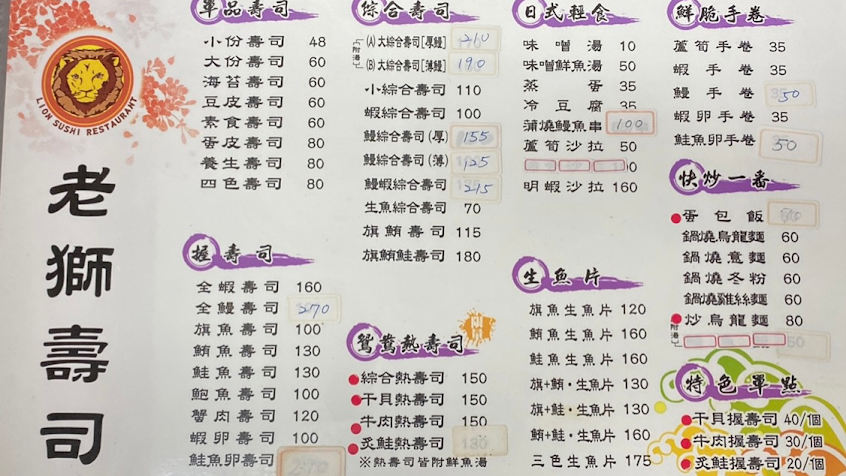 LION SUSHI RESTAURANT
老獅壽司
單品壽司
小份壽司 48
大份壽司 60
海苔壽司 60
豆皮壽司 60
素食壽司 60
蛋皮壽司 80
養生壽司 80
四色壽司 80
握壽司
全蝦壽司 160
全鰻壽司 270
旗魚壽司 100
鮪魚壽司 130
鮭魚壽司 130
鮑魚壽司 100
蟹肉壽司 120
蝦卵壽司 100
鮭魚卵壽司
綜合壽司
附湯
(A) 大綜合壽司[厚鰻] 260
(B) 大綜合壽司[薄鰻] 190
小綜合壽司 110
蝦綜合壽司 100
鰻綜合壽司(厚) 155
鰻綜合壽司(薄) 125
鰻蝦綜合壽司 215
生魚綜合壽司 70
旗鮪壽司 115
旗鮪鮭壽司 180
鴛鴦熱壽司
附湯
綜合熱壽司 150
干貝熱壽司 150
牛肉熱壽司 150
炙鮭熱壽司 180
※熱壽司皆附鮮魚湯
日式輕食
味噌湯 10
味噌鮮魚湯 50
蒸蛋 35
冷豆腐 35
蒲燒鰻魚串 100
蘆筍沙拉 50
明蝦沙拉 160
生魚片
旗魚生魚片 120
鮪魚生魚片 160
鮭魚生魚片 160
旗+鮪・生魚片 130
旗+鮭・生魚片 130
鮪+鮭・生魚片 160
三色生魚片 175
鮮脆手卷
蘆筍手卷 35
蝦手卷 35
鰻手卷 50
蝦卵手卷 35
鮭魚卵手卷 50
快炒一番
蛋包飯 80
鍋燒烏龍麵 60
鍋燒意麵 60
鍋燒冬粉 60
鍋燒雞絲麵 60
炒烏龍麵 80
附湯
50
特色單點
干貝握壽司 40/個
牛肉握壽司 30/個
炙鮭握壽司 20/個